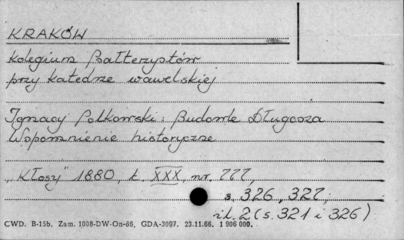 KRAKÓW
Kolegium Psałterzystów
przy katedrze wawelskiej
Ignacy Polkowski: Budowle Długosza
Wspomnienie historyczne
„Kłosy" 1880, t. XXX, nr. 777,
s. 326, 327,
il. 2 (s. 321 i 326)
CWD. B-15b. Zam. 1008-DW-On-66. GDA-3097. 23.11.66. 1 906 000.